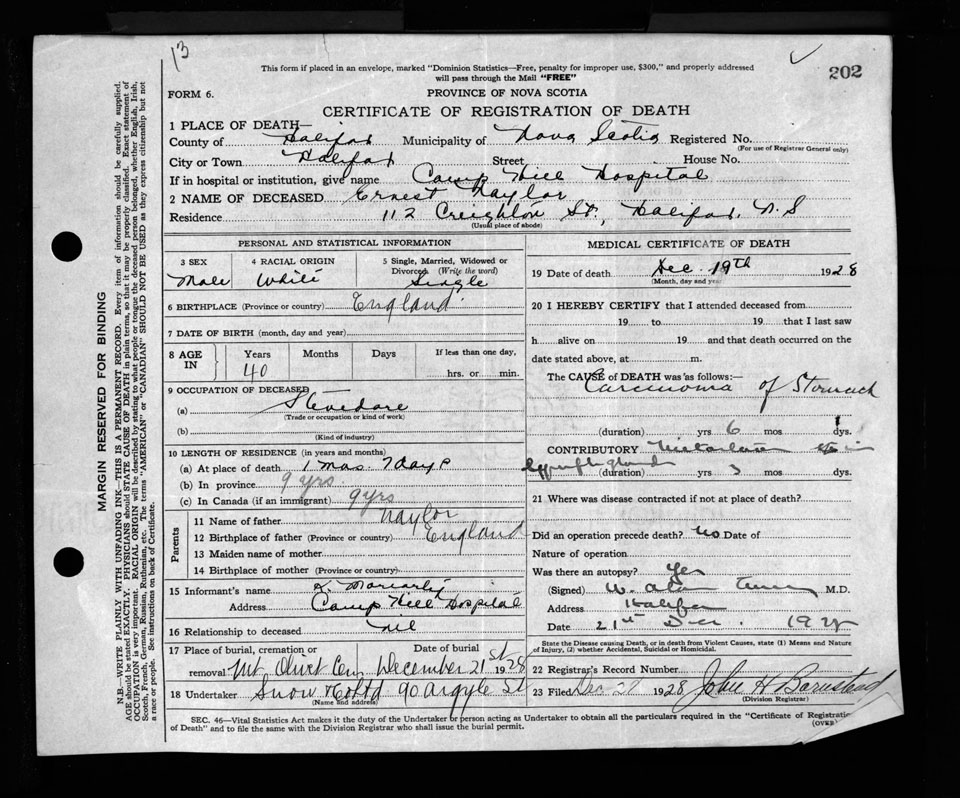 13
202
This form if placed in an envelope, marked "Dominion Statistics—Free, penalty for improper use, $300," and properly addressed
will pass through the Mail "FREE"
FORM 6.
PROVINCE OF NOVA SCOTIA
CERTIFICATE OF REGISTRATION OF DEATH
1 PLACE OF DEATH—
County of Halifax Municipality of Nova Scotia Registered No.
(For use of Registrar General only)
City or Town Halifax Street House No.
If in hospital or institution, give name Camp Hill Hospital
2 NAME OF DECEASED Ernest Naylor
Residence 112 Creighton St., Halifax, N.S
(Usual place of abode)
PERSONAL AND STATISTICAL INFORMATION
3 SEX 4 RACIAL ORIGIN 5 Single, Married, Widowed or
Divorced (Write the word)
Male White Single
6 BIRTHPLACE (Province or country) England
7 DATE OF BIRTH (month, day and year)
8 AGE IN Years Months Days If less than one day,
40 hrs. or min.
9 OCCUPATION OF DECEASED
(a) Stevedore
(Trade or occupation or kind of work)
(b)
(Kind of industry)
10 LENGTH OF RESIDENCE (in years and months)
(a) At place of death 1 mos. 7 days
(b) In province 9 yrs
(c) In Canada (if an immigrant) 9 yrs
Parents
11 Name of father Naylor
12 Birthplace of father (Province or country) England
13 Maiden name of mother
14 Birthplace of mother (Province or country)
15 Informant's name Moriarty
Address Camp Hill Hospital
16 Relationship to deceased Nil
17 Place of burial, cremation or removal Date of burial
Mt. Olivet Cem. December 21st 1928
18 Undertaker Snow & Co Ltd 90 Argyle St
(Name and address)
MEDICAL CERTIFICATE OF DEATH
19 Date of death Dec. 19th 1928
(Month, day and year)
20 I HEREBY CERTIFY that I attended deceased from
19 to 19 that I last saw
h alive on 19 and that death occurred on the
date stated above, at m.
The CAUSE of DEATH was as follows:—
Carcinoma of Stomach
(duration) yrs 6 mos dys.
CONTRIBUTORY
(duration) yrs 3 mos dys.
21 Where was disease contracted if not at place of death?
Did an operation precede death? No Date of
Nature of operation
Was there an autopsy? Yes
(Signed) W. Alan M.D.
Address Halifax
Date 21st Dec. 192
State the Disease causing Death, or in death from Violent Causes, state (1) Means and Nature
of Injury, (2) whether Accidental, Suicidal or Homicidal.
22 Registrar's Record Number
23 Filed Dec 28 1928 John H Barnstead
(Division Registrar)
SEC. 46—Vital Statistics Act makes it the duty of the Undertaker or person acting as Undertaker to obtain all the particulars required in the "Certificate of Registration
of Death" and to file the same with the Division Registrar who shall issue the burial permit.
(OVER)
MARGIN RESERVED FOR BINDING
N.B.—WRITE PLAINLY WITH UNFADING INK—THIS IS A PERMANENT RECORD. Every item of information should be carefully supplied.
AGE should be stated EXACTLY. PHYSICIANS should STATE CAUSE OF DEATH in plain terms, so that it may be properly classified. Exact statement of
OCCUPATION is very important. RACIAL ORIGIN will be described by stating to what people or tongue the deceased person belonged, whether English, Irish,
Scotch, French, German, Russian, Ruthenian, etc. The terms "AMERICAN" or "CANADIAN" SHOULD NOT BE USED as they express citizenship but not
a race or people. See instructions on back of Certificate.